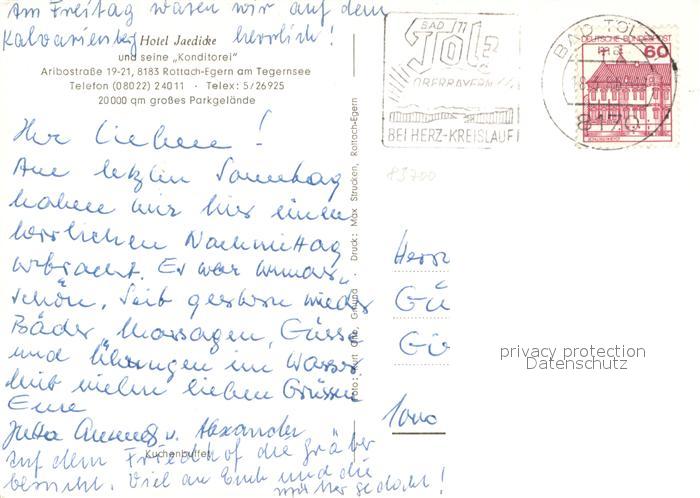 Am Freitag waren wir auf dem
Kalvarienberg herrlich!
Hotel Jaedicke
und seine „Konditorei"
Aribostraße 19-21, 8183 Rottach-Egern am Tegernsee
Telefon (08022) 24011 · Telex: 5/26925
20000 qm großes Parkgelände
Ihr Lieben!
Am letzten Sonntag
haben wir hier einen
herrlichen Nachmittag
verbracht. Es war wunder-
schön. Seit gestern wieder
Bäder, Massagen, Güsse
und Übungen im Wasser
Mit vielen lieben Grüssen
Eure
Jutta v. Alexander
Kuchenbuffet
Auf dem Friedhof die Gräber
besucht. Viel an Euch und die
Mutter gedacht!
Druck: Max Strucken, Rottach-Egern
BAD TÖLZ
OBERBAYERN
BEI HERZ-KREISLAUF
BAD TÖLZ
8170
DEUTSCHE BUNDESPOST
60
83700
Herrn
Gü
Gü
1000
privacy protection
Datenschutz